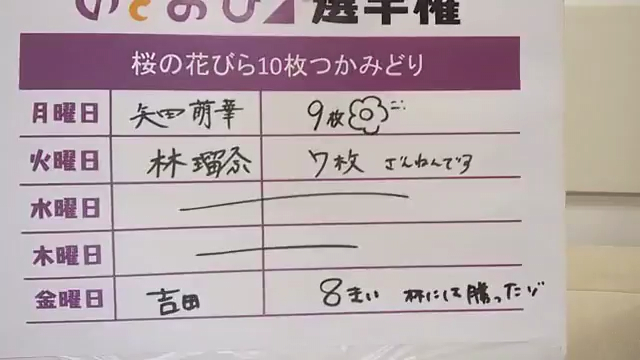 選手権
桜の花びら10枚つかみどり
月曜日 矢田萌華 9枚
火曜日 林瑠奈 7枚 ざんねんです
水曜日
木曜日
金曜日 吉田 8まい 林には勝ったゾ